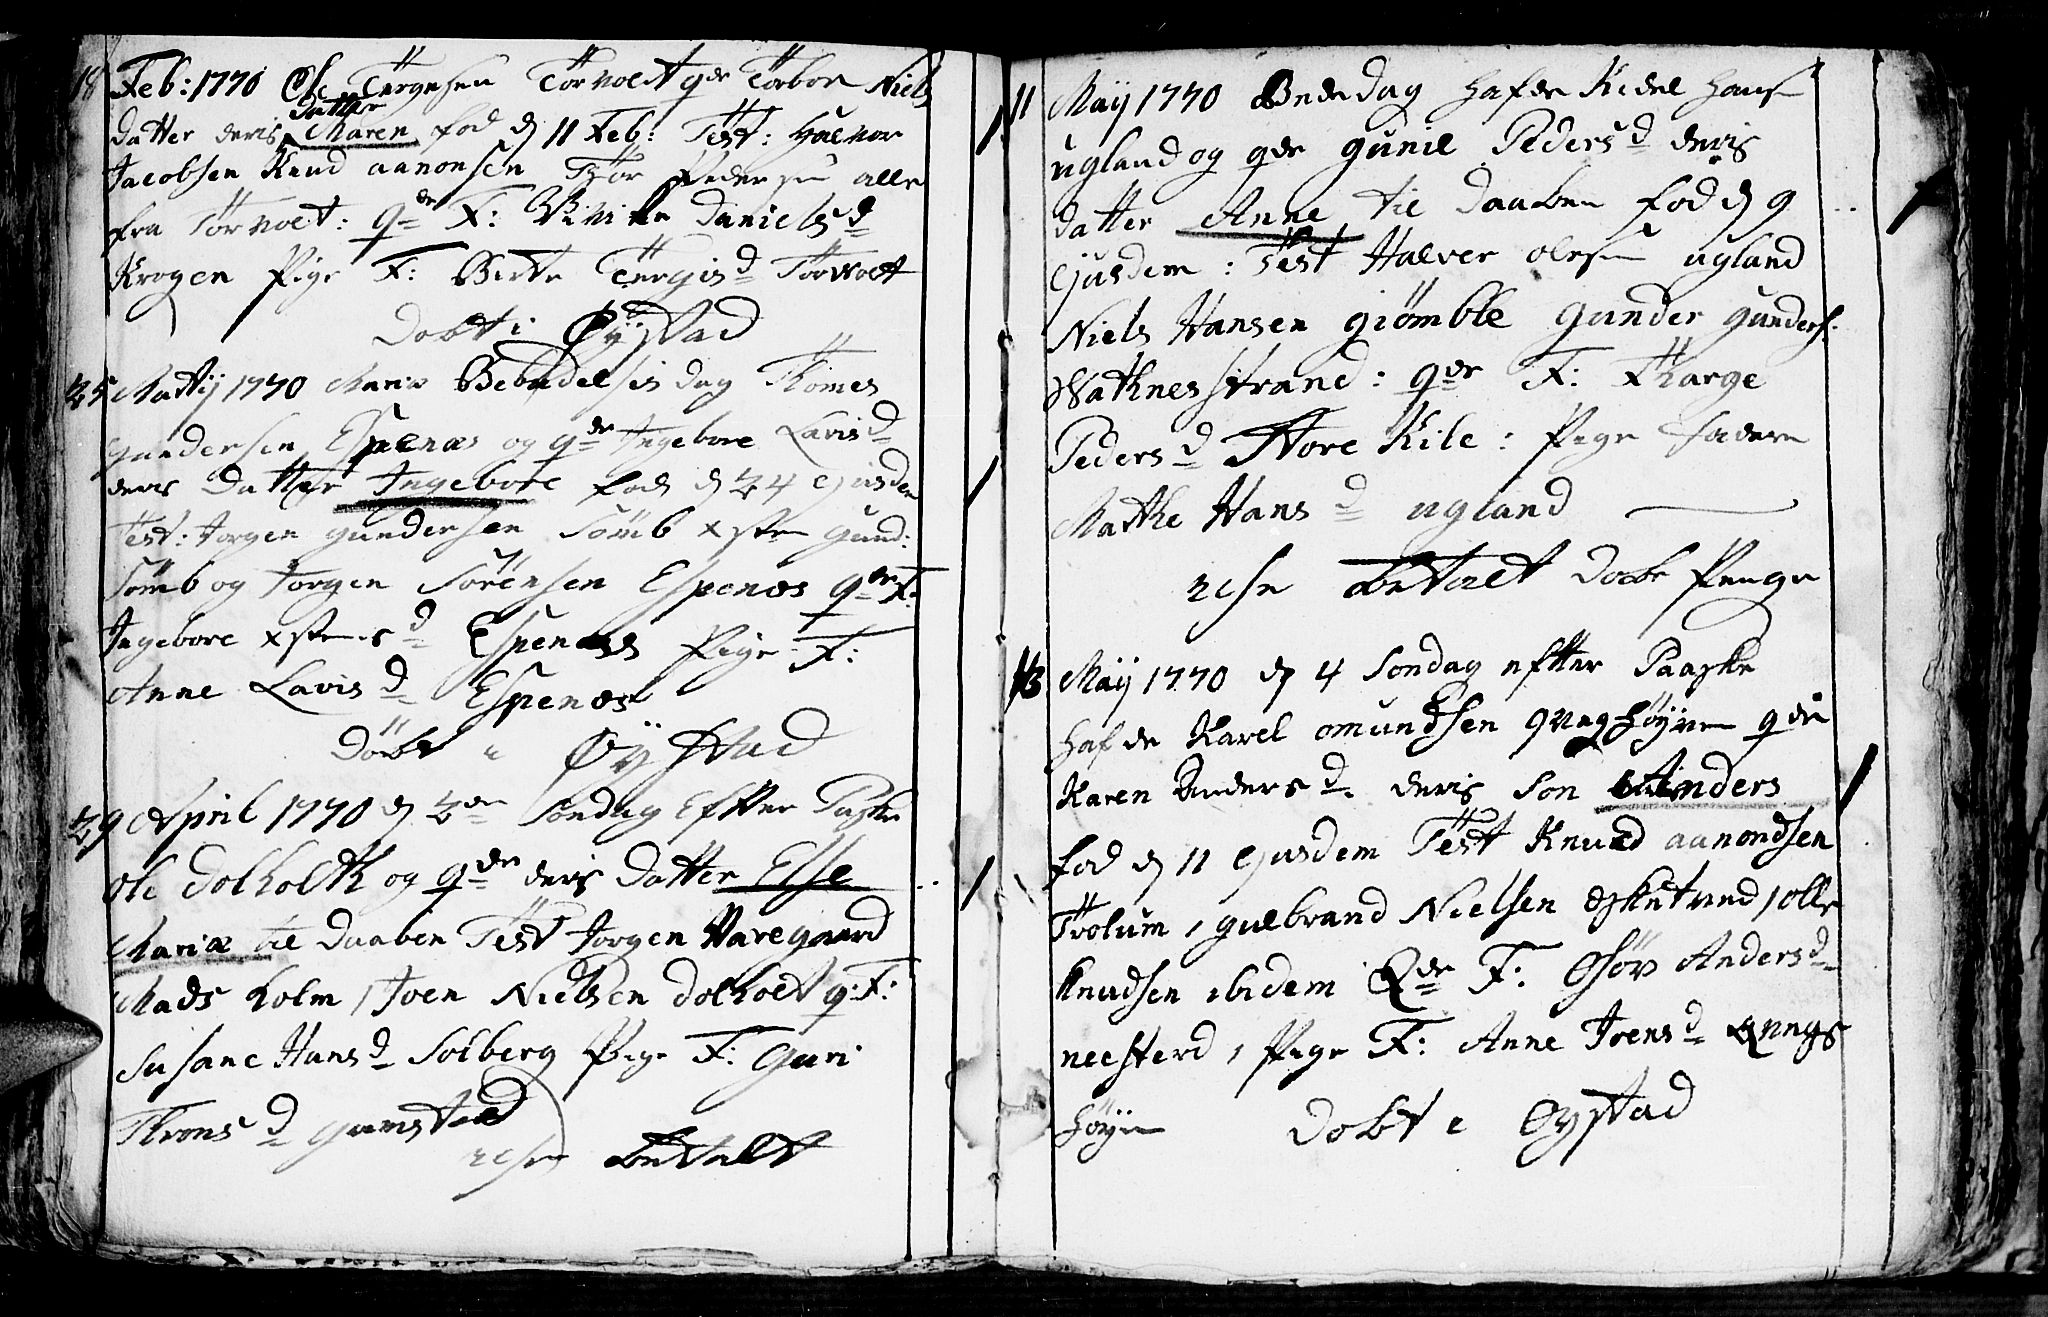 18 Feb: 1770 Ole Tergesen Torvolt qde Torbor Niels
datter deris Datter Maren fød d 11 Feb: Test: Halvor
Jacobsen Knud aanonsen Thor Pedersen alle
fra Torvolt: qde F: Vivike Daniels d
Krogen Pige F: Birte Tergis d Torvolt
Dobt i Øystad
25 Martij 1770 Mariæ Bebudelsis dag Tomes
gundersen Espenæs og qde Ingebore Lavis d
deris Datter Ingebore fød d 24 ejusdem
Test: Jorgen gundersen Sömb xsten gund:
Sömb og Jorgen Sörensen Espenæs qde F:
Ingebore xstens d Espenæs Pige F:
Anne Lavis d Espenæs
Döbt i Øystad
29 April 1770 d 2den Sondag Efter Paske
Ole Dolholth og qde deris Datter Else
Maria til Daaben Test Jorgen Haregaard
Mads Holm, Joen Nielsen Dolholt q: F:
Susane Hans d Solberg Pige F: Guri
Throns d gamsted
betalt
11 Maij 1770 Bededag hafde Kidel Hans
ugland og qde gunil Peders d deris
datter Anne til Daaben fød d 9
ejusdem: Test Halvor olesen ugland
Niels Hansen giömble gunder gunders:
Wathnes strand: qde F: Targe
Peders d Store Kile: Pige Fadere
Marthe Hans d ugland
betalt Dobe Penge
13 Maij 1770 d 4 Sondag efter Paaske
hafde Karel omundsen qvaghöyen qde
Karen Anders d. deris Son Anders
fød d 11 ejusdem Test Knud aanondsen
Trolum, gulbrand Nielsen, olle
Knudsen ibidem Qde F: Anders d
, Pige F: Anne Joens d qvags
höyen Dobt i Oystad